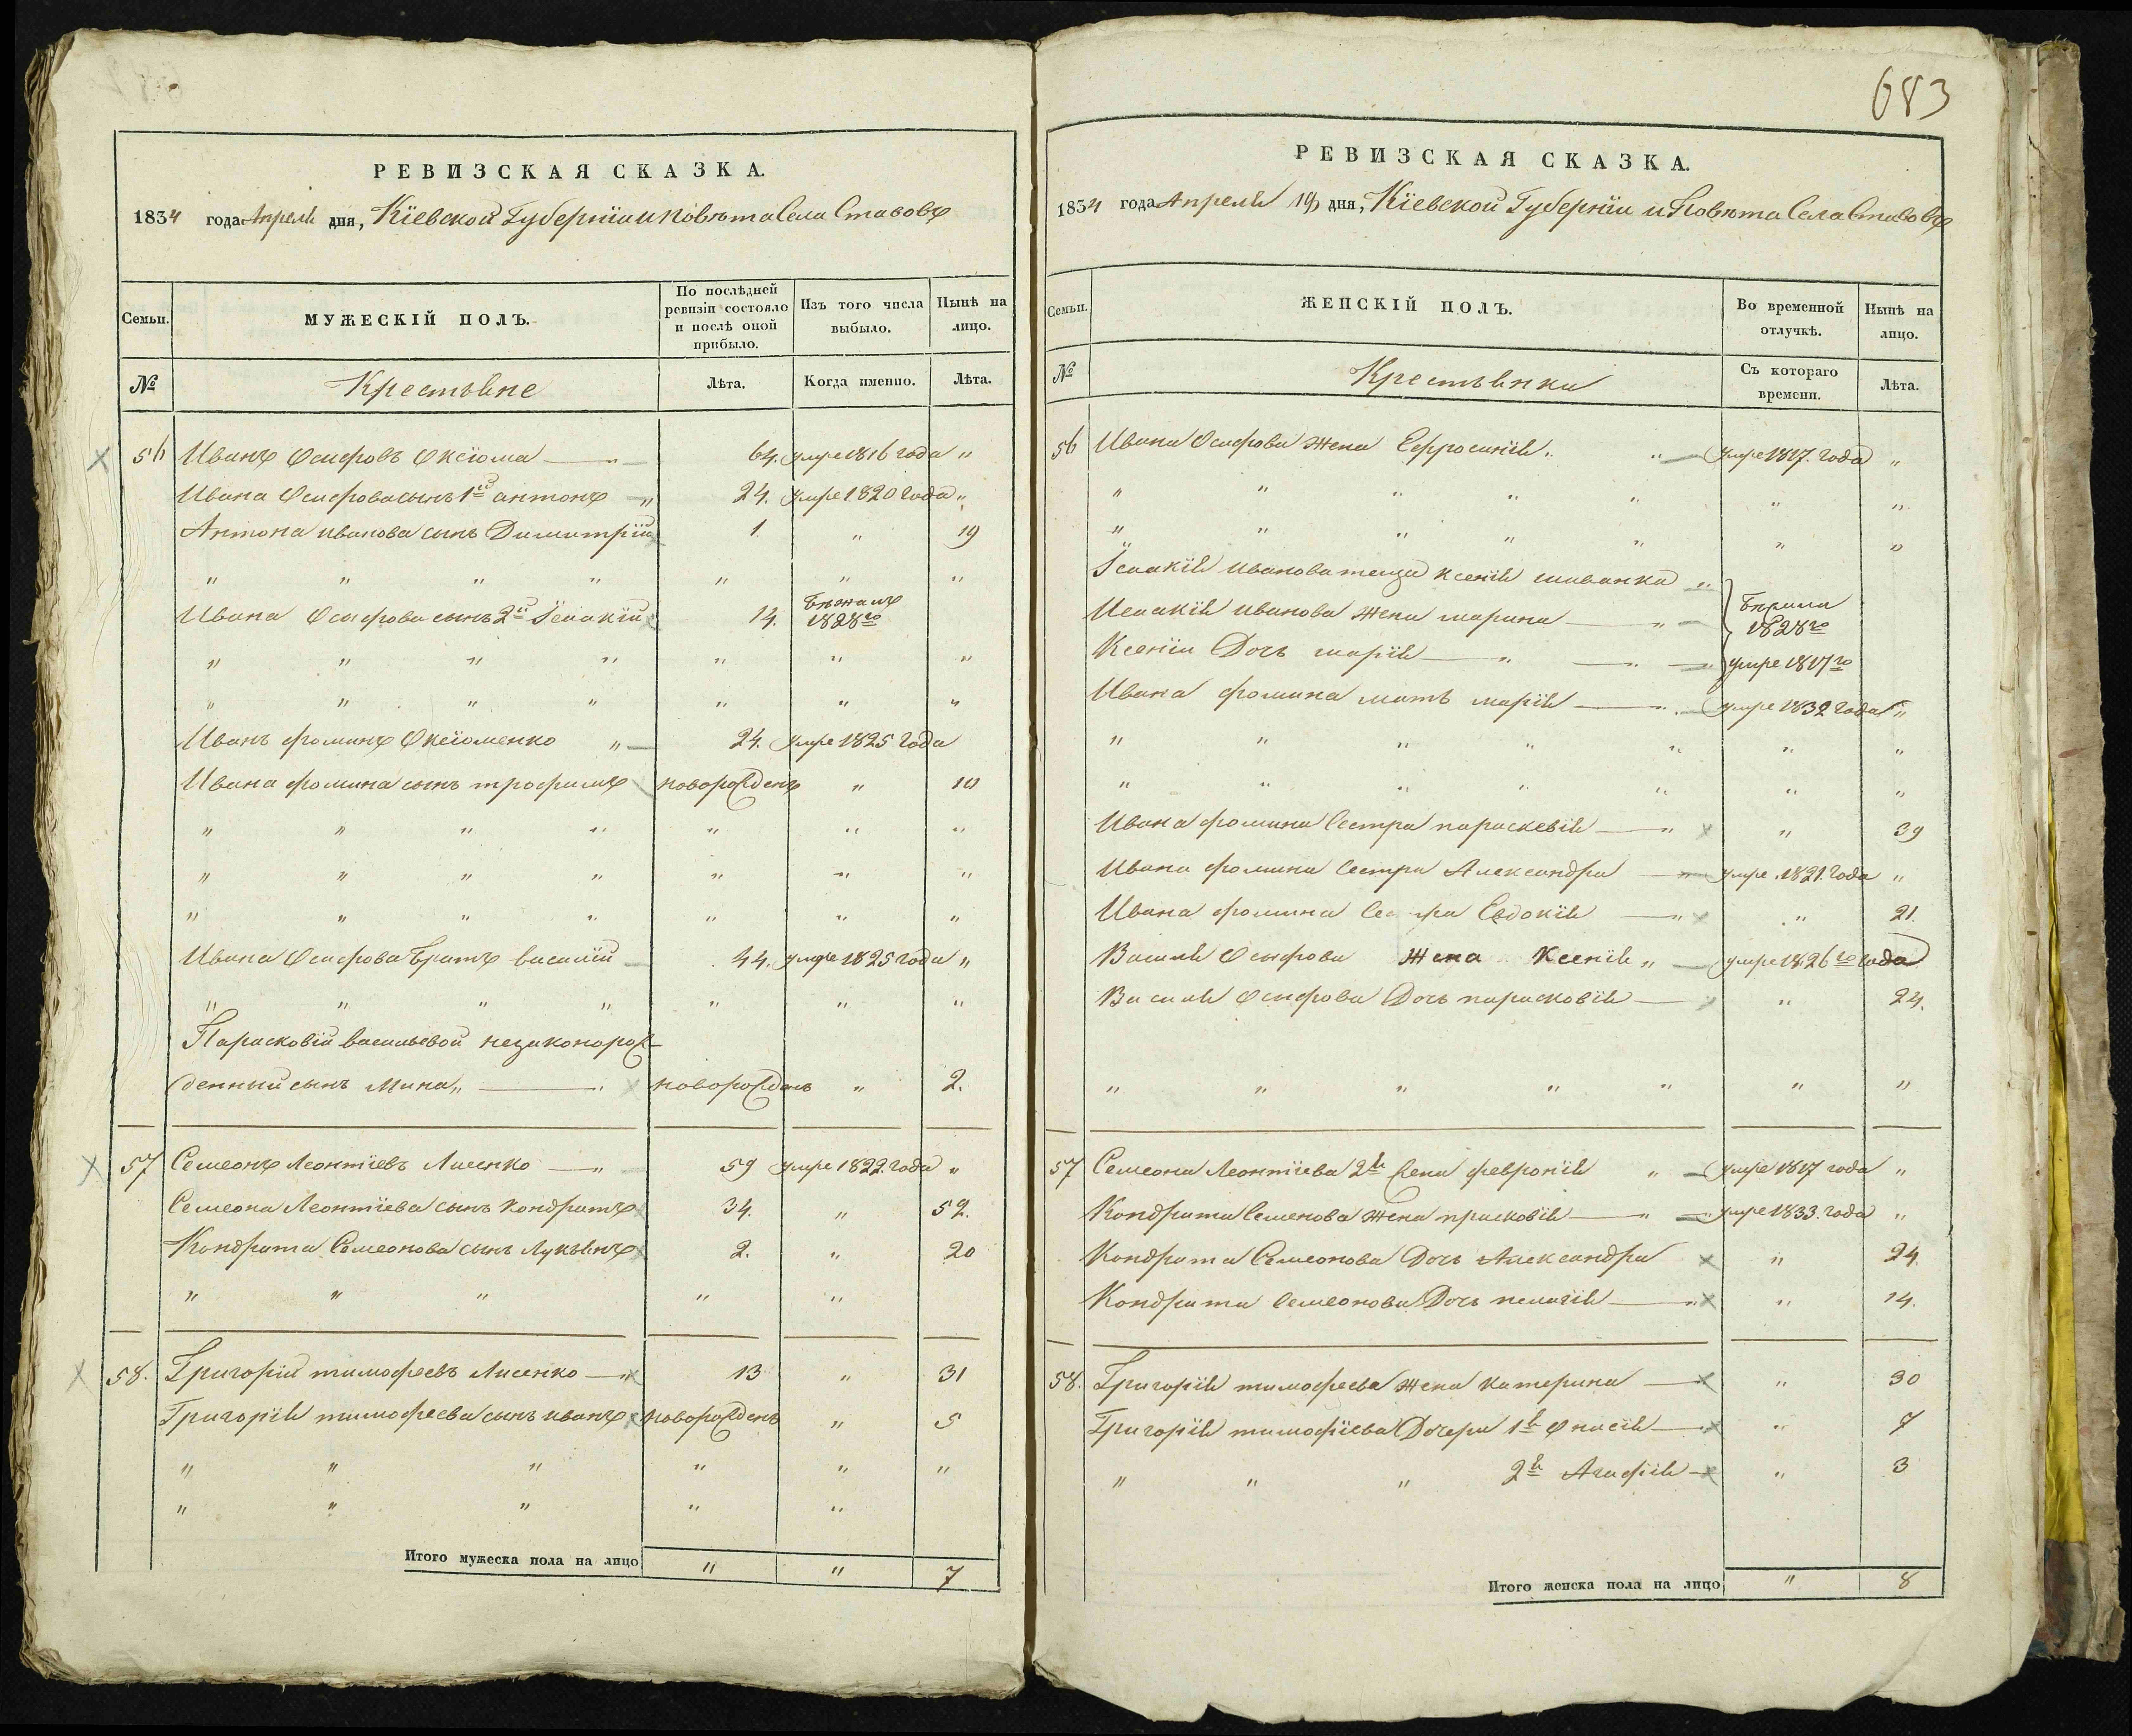 683
РЕВИЗСКАЯ СКАЗКА.
1834 года Апреля дня, Кіевской Губерніи и Повѣта Села Ставовъ
Семьи.
МУЖЕСКІЙ ПОЛЪ.
По послѣдней ревизіи состояло и послѣ оной прибыло.
Изъ того числа выбыло.
Нынѣ на лицо.
№
Крестьяне
Лѣта.
Когда именно.
Лѣта.
56 Иванъ Осифовъ Оксіома — 64. умре 1816 года "
Ивана Осифова сынъ 1й антонъ " 24. умре 1820 года "
Антона иванова сынъ Димитрій 1. " 19
" " " " " " "
Ивана Осифова сынъ 2й Ісаакій 14. Бѣжалъ 1828го
" " " " " " "
" " " " " " "
Иванъ фоминъ Оксіоменко " 24. умре 1825 года
Ивана фомина сынъ трофимъ новорожденъ " 10
" " " " " " "
" " " " " " "
" " " " " " "
Ивана Осифова Братъ василій 44. умре 1825 года "
" " " " " " "
Парасковіи васильевой незаконорож-
денный сынъ Мина " — новорожденъ " 2.
57 Семеонъ Леонтіевъ Лисенко — " 59 умре 1822. года "
Семеона Леонтіева сынъ кондратъ 34. " 52.
Кондрата Семеонова сынъ Лукьянъ 2. " 20
" " " " "
58. Григорій тимофеевъ Лисенко — " 13 " 31
Григорія тимофеева сынъ иванъ новорожденъ " 5
" " " " " "
" " " " "
Итого мужеска пола на лицо " " 7
РЕВИЗСКАЯ СКАЗКА.
1834 года Апреля 19 дня, Кіевской Губерніи и Повѣта Села Ставовъ
Семьи.
ЖЕНСКІЙ ПОЛЪ.
Во временной отлучкѣ.
Нынѣ на лицо.
№
Крестьянки
Съ котораго времени.
Лѣта.
56 Ивана Осифова жена Ефросинія " " умре 1817. года "
" " " " " " "
" " " " " " "
Ісаакія иванова теща ксенія "
Исаакія иванова жена марина — " Бѣжала 1828го
Ксеніи Дочь марія — " — " умре 1817го
Ивана фомина мать марія — " умре 1832 года "
" " " " " " "
" " " " " " "
Ивана фомина Сестра параскевія — " " 39
Ивана фомина Сестра Александра — " умре 1821. года "
Ивана фомина Сестра Евдокія — " " 21.
Василя Осифова жена Ксенія " умре 1826го года
Василя Осифова Дочь парасковія — " 24.
" " " " " " "
57 Семеона Леонтіева 2я жена февронія " умре 1817 года "
Кондрата Семенова жена прасковія — " умре 1833. года "
Кондрата Семеонова Дочь Александра " 24.
Кондрата Семеонова Дочь пелагія — " " 14.
58. Григорія тимофеева жена катерина — " 30
Григорія тимофіева Дочери 1я Онисія — " 7
" " " 2я Агафія — " 3
Итого женска пола на лицо " 8